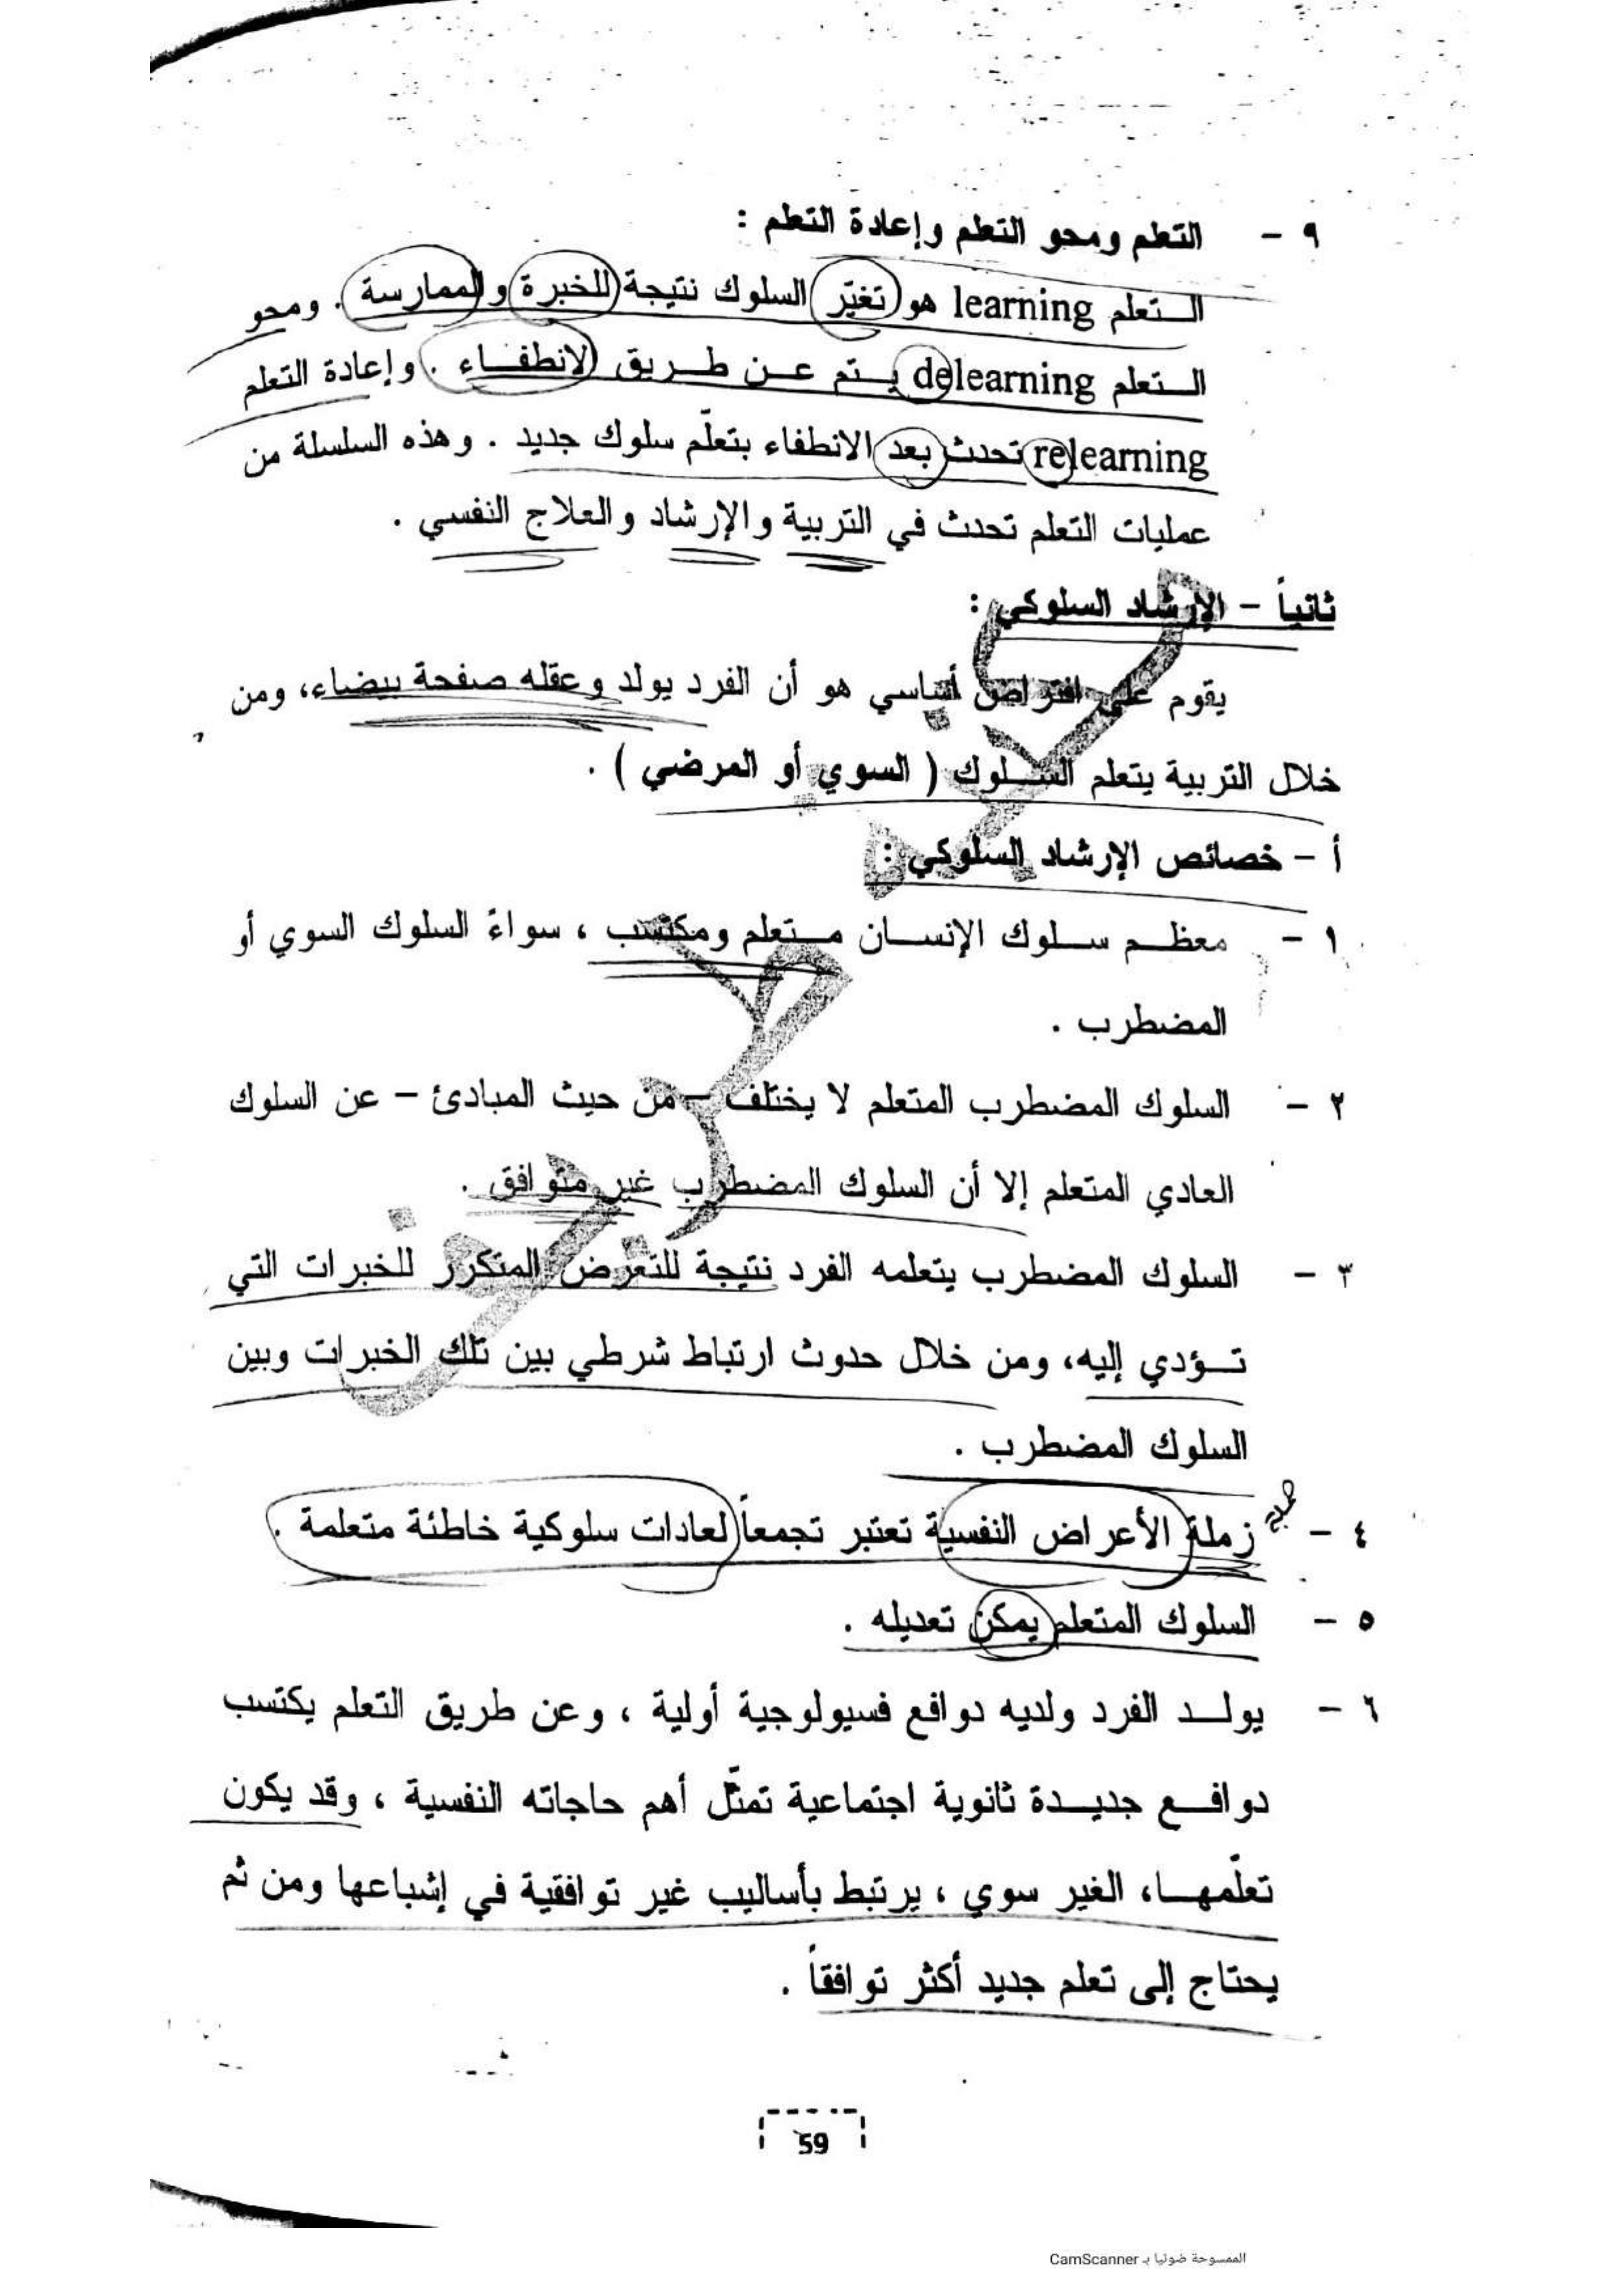 ٩ - التعلم ومحو التعلم وإعادة التعلم :
التعلم learning هو تغيّر السلوك نتيجة للخبرة والممارسة . ومحو
التعلم delearning يتم عن طريق الانطفاء . وإعادة التعلم
relearning تحدث بعد الانطفاء بتعلّم سلوك جديد . وهذه السلسلة من
عمليات التعلم تحدث في التربية والإرشاد والعلاج النفسي .
ثانياً - الإرشاد السلوكي :
يقوم على افتراض أساسي هو أن الفرد يولد وعقله صفحة بيضاء، ومن
خلال التربية يتعلم السلوك ( السوي أو المرضي ) .
أ - خصائص الإرشاد السلوكي :
١ - معظم سلوك الإنسان متعلم ومكتسب ، سواءً السلوك السوي أو
المضطرب .
٢ - السلوك المضطرب المتعلم لا يختلف - من حيث المبادئ - عن السلوك
العادي المتعلم إلا أن السلوك المضطرب غير متوافق .
٣ - السلوك المضطرب يتعلمه الفرد نتيجة للتعرض المتكرر للخبرات التي
تؤدي إليه، ومن خلال حدوث ارتباط شرطي بين تلك الخبرات وبين
السلوك المضطرب .
٤ - زملة الأعراض النفسية تعتبر تجمعاً لعادات سلوكية خاطئة متعلمة .
٥ - السلوك المتعلم يمكن تعديله .
٦ - يولد الفرد ولديه دوافع فسيولوجية أولية ، وعن طريق التعلم يكتسب
دوافع جديدة ثانوية اجتماعية تمثّل أهم حاجاته النفسية ، وقد يكون
تعلّمها، الغير سوي ، يرتبط بأساليب غير توافقية في إشباعها ومن ثم
يحتاج إلى تعلم جديد أكثر توافقاً .
59
الممسوحة ضوئيا بـ CamScanner